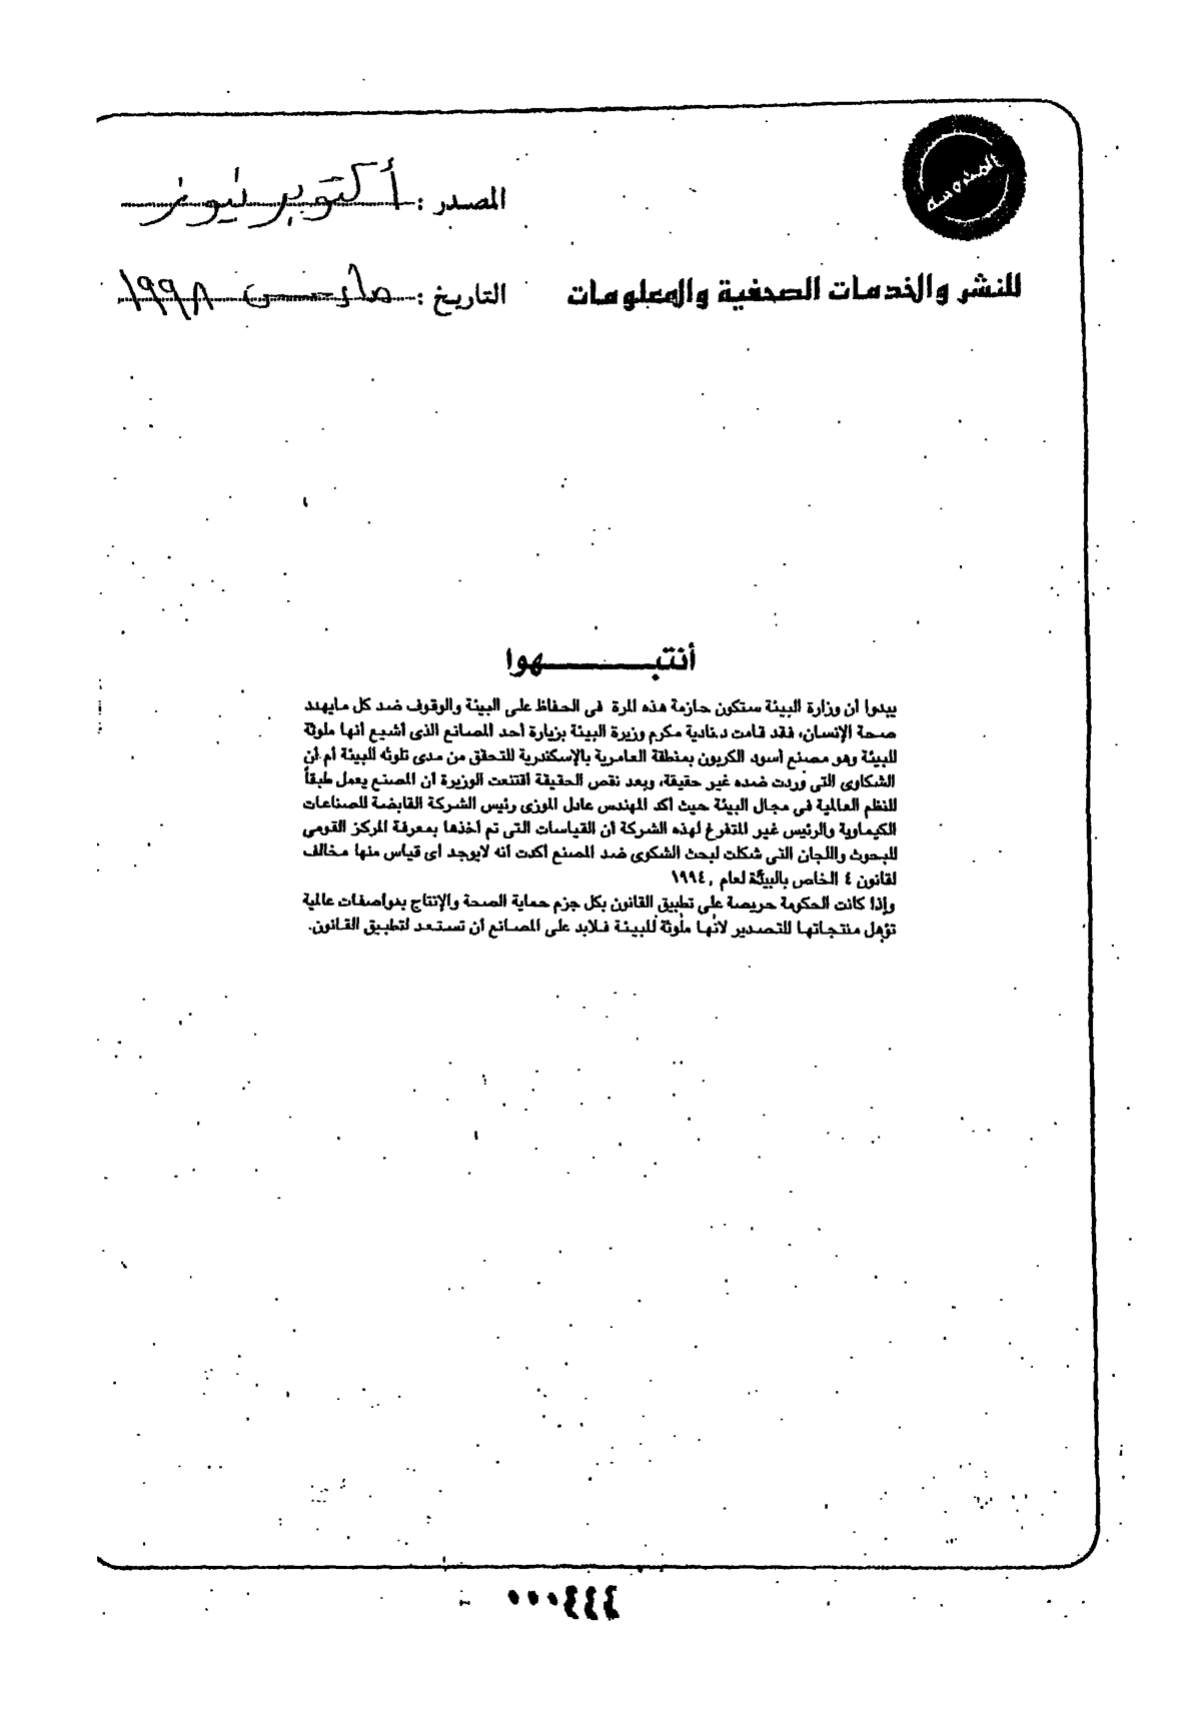 المحروسة
المصدر : أكتوبر نيوز
للنشر والخدمات الصحفية والمعلومات
التاريخ : مارس ١٩٩٨
أنتبهوا
يبدوا أن وزارة البيئة ستكون حازمة هذه المرة فى الحفاظ على البيئة والوقوف ضد كل مايهدد
صحة الإنسان، فقد قامت د.نادية مكرم وزيرة البيئة بزيارة أحد المصانع الذى أشيع أنها ملوثة
للبيئة وهو مصنع أسود الكربون بمنطقة العامرية بالإسكندرية للتحقق من مدى تلوثه للبيئة أم أن
الشكاوى التى وردت ضده غير حقيقة، وبعد نقص الحقيقة أقتنعت الوزيرة أن المصنع يعمل طبقاً
للنظم العالمية فى مجال البيئة حيث أكد المهندس عادل الموزى رئيس الشركة القابضة للصناعات
الكيماوية والرئيس غير المتفرغ لهذه الشركة أن القياسات التى تم أخذها بمعرفة المركز القومى
للبحوث واللجان التى شكلت لبحث الشكوى ضد المصنع أكدت أنه لايوجد أى قياس منها مخالف
لقانون ٤ الخاص بالبيئة لعام ١٩٩٤,
وإذا كانت الحكومة حريصة على تطبيق القانون بكل جزم حماية الصحة والإنتاج بمواصفات عالمية
تؤهل منتجاتها للتصدير لأنها ملوثة للبيئة فلابد على المصانع أن تستعد لتطبيق القانون.